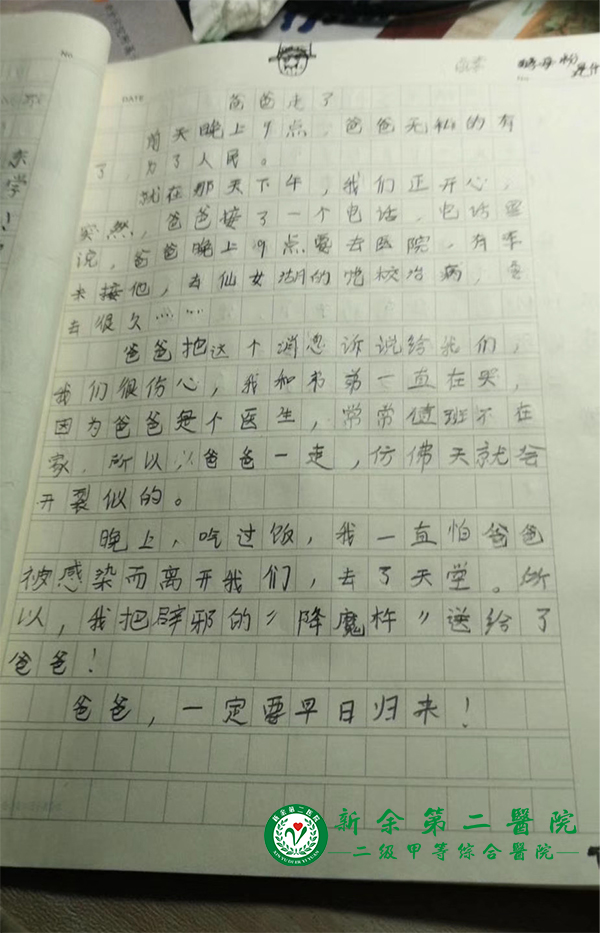 No.
DATE
爸爸走了
前天晚上9点，爸爸无私的有
了，为了人民。
就在那天下午，我们正开心，
突然，爸爸接了一个电话，电话里
说，爸爸晚上9点要去医院，有车
来接他，去仙女湖的党校治病，要
去很久……
爸爸把这个消息诉说给我们，
我们很伤心，我和弟弟一直在哭，
因为爸爸是个医生，常常值班不在
家，所以爸爸一走，仿佛天就会
开裂似的。
晚上，吃过饭，我一直怕爸爸
被感染而离开我们，去了天堂。所
以，我把辟邪的“降魔杵”送给了
爸爸！
爸爸，一定要早日归来！
新余第二醫院
XIN YU DI ER YI YUAN
新余第二醫院
—二级甲等综合醫院—